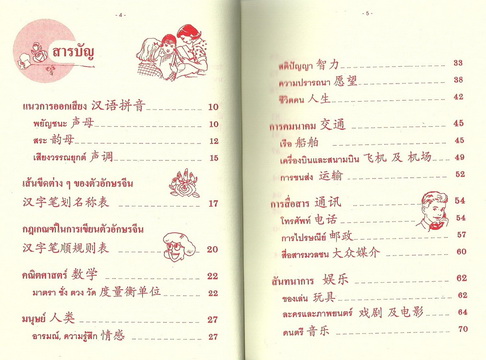 - 4 -
สารบัญ
แนวการออกเสียง 汉语拼音 10
พยัญชนะ 声母 10
สระ 韵母 12
เสียงวรรณยุกต์ 声调 15
เส้นขีดต่าง ๆ ของตัวอักษรจีน
汉字笔划名称表 17
กฎเกณฑ์ในการเขียนตัวอักษรจีน
汉字笔顺规则表 20
คณิตศาสตร์ 数学 22
มาตรา ชั่ง ตวง วัด 度量衡单位 22
มนุษย์ 人类 27
อารมณ์, ความรู้สึก 情感 27
- 5 -
สติปัญญา 智力 33
ความปรารถนา 愿望 38
ชีวิตคน 人生 42
การคมนาคม 交通 45
เรือ 船舶 45
เครื่องบินและสนามบิน 飞机 及 机场 49
การขนส่ง 运输 52
การสื่อสาร 通讯 54
โทรศัพท์ 电话 54
การไปรษณีย์ 邮政 57
สื่อสารมวลชน 大众媒介 60
สันทนาการ 娱乐 62
ของเล่น 玩具 62
ละครและภาพยนตร์ 戏剧 及 电影 64
ดนตรี 音乐 70